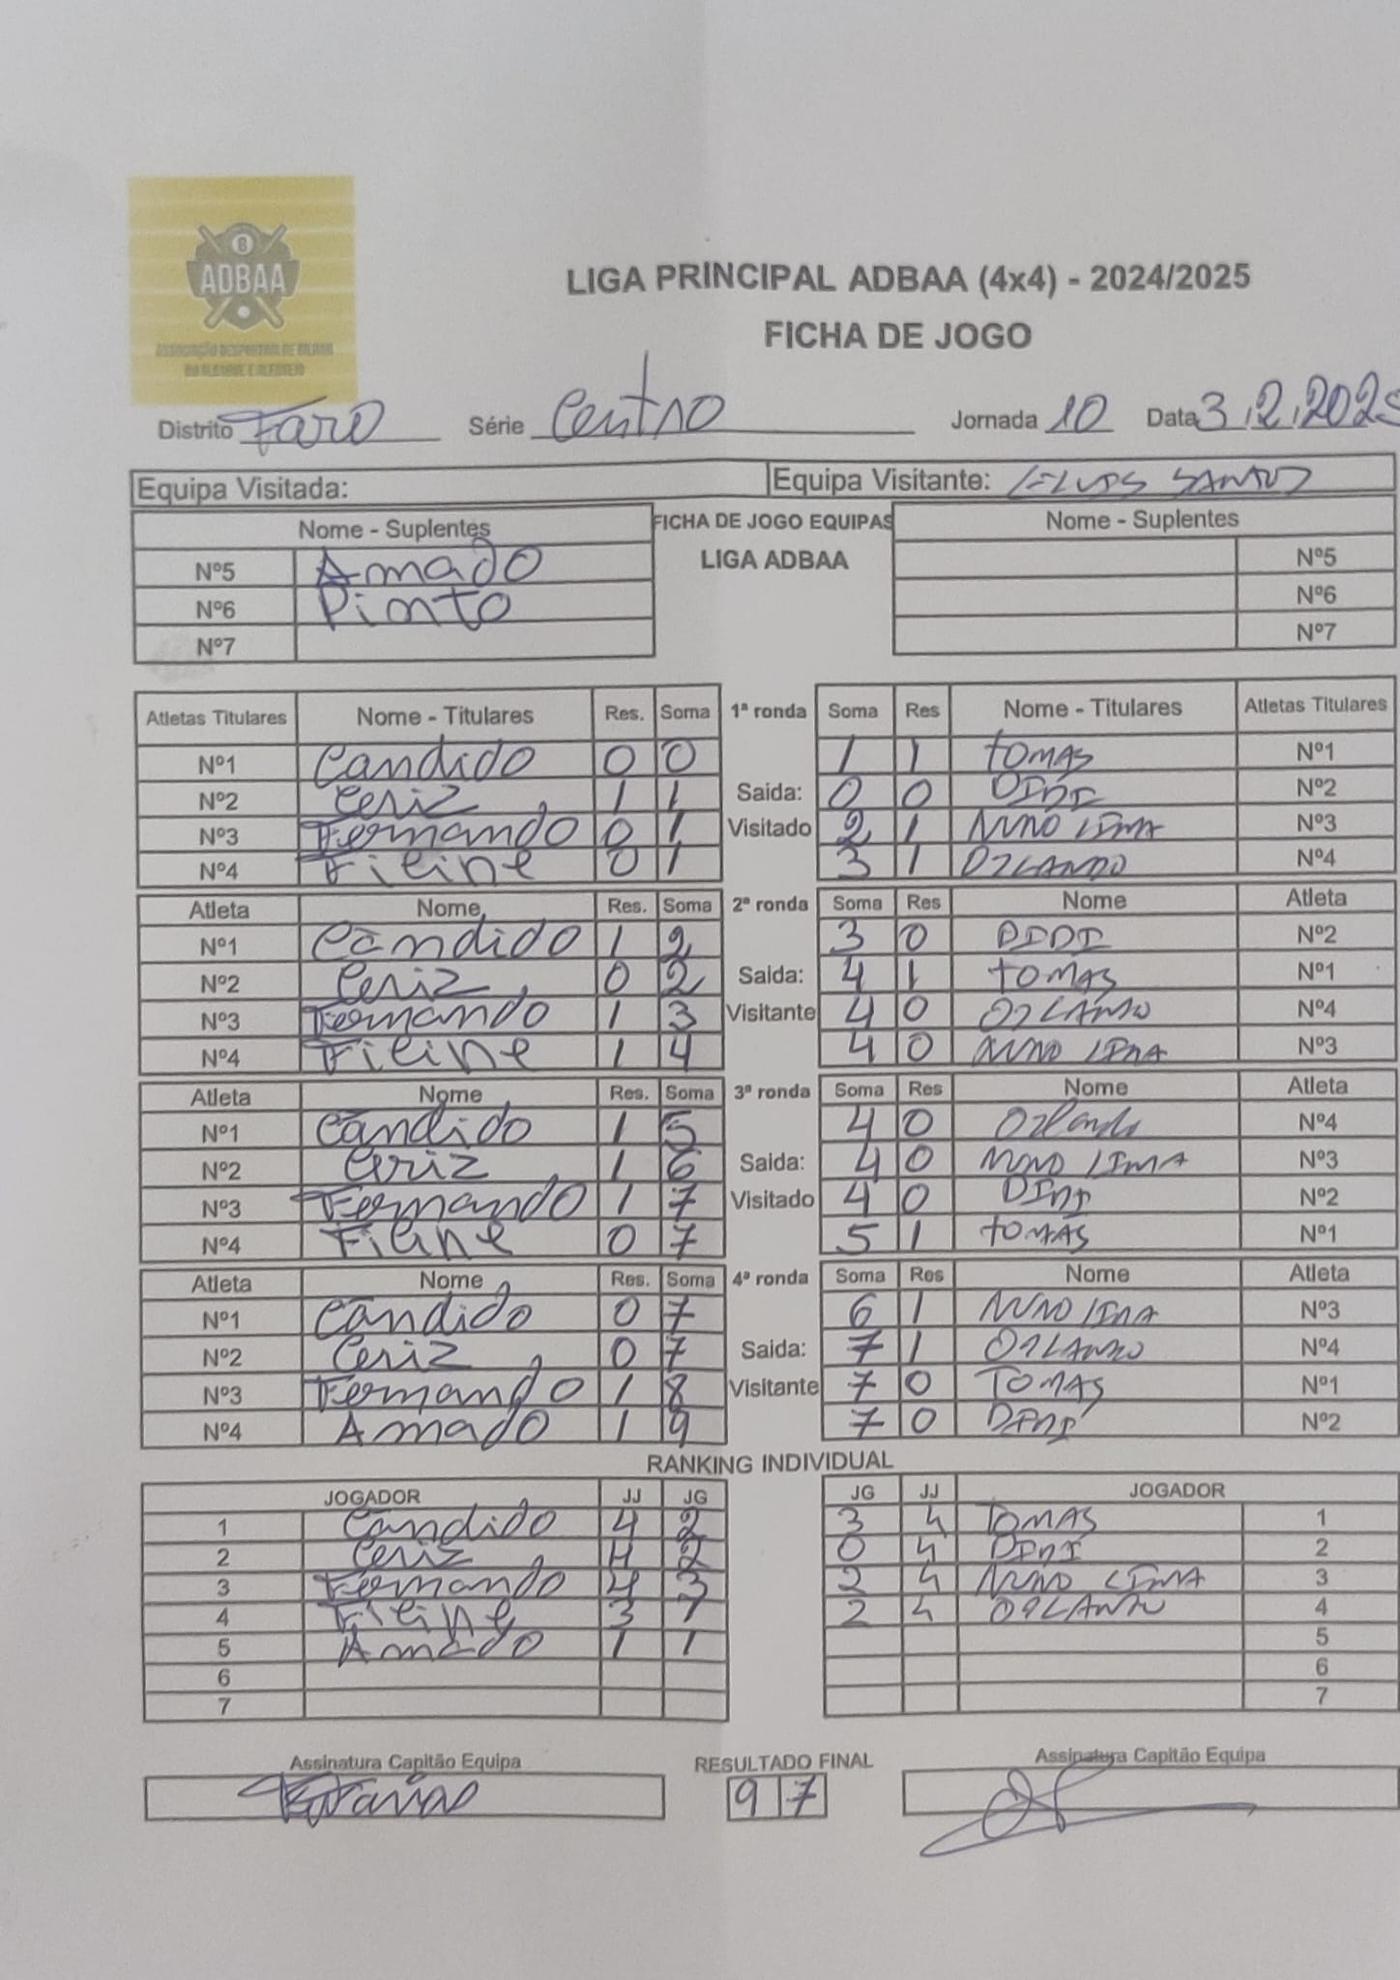 8
ADBAA
ASSOCIAÇÃO DESPORTIVA DE BILHAR
DO ALGARVE E ALENTEJO
LIGA PRINCIPAL ADBAA (4x4) - 2024/2025
FICHA DE JOGO
Distrito Faro Série Centro Jornada 10 Data 3.2.2025
Equipa Visitada: Equipa Visitante: SANTOS
Nome - Suplentes FICHA DE JOGO EQUIPAS Nome - Suplentes
Nº5 Amado LIGA ADBAA Nº5
Nº6 Pinto Nº6
Nº7 Nº7
Atletas Titulares Nome - Titulares Res. Soma 1ª ronda Soma Res Nome - Titulares Atletas Titulares
Nº1 Candido 0 0 1 1 TOMAS Nº1
Nº2 Ceriz 1 1 Saida: 0 0 DIDI Nº2
Nº3 Fernando 0 1 Visitado 2 1 NUNO LIMA Nº3
Nº4 Filipe 0 1 3 1 ORLANDO Nº4
Atleta Nome Res. Soma 2ª ronda Soma Res Nome Atleta
Nº1 Candido 1 2 3 0 DIDI Nº2
Nº2 Ceriz 0 2 Saida: 4 1 TOMAS Nº1
Nº3 Fernando 1 3 Visitante 4 0 ORLANDO Nº4
Nº4 Filipe 1 4 4 0 NUNO LIMA Nº3
Atleta Nome Res. Soma 3ª ronda Soma Res Nome Atleta
Nº1 Candido 1 5 4 0 Orlando Nº4
Nº2 Ceriz 1 6 Saida: 4 0 NUNO LIMA Nº3
Nº3 Fernando 1 7 Visitado 4 0 DIDI Nº2
Nº4 Filipe 0 7 5 1 TOMAS Nº1
Atleta Nome Res. Soma 4ª ronda Soma Res Nome Atleta
Nº1 Candido 0 7 6 1 NUNO LIMA Nº3
Nº2 Ceriz 0 7 Saida: 7 1 ORLANDO Nº4
Nº3 Fernando 1 8 Visitante 7 0 TOMAS Nº1
Nº4 Amado 1 9 7 0 DIDI Nº2
RANKING INDIVIDUAL
JOGADOR JJ JG JG JJ JOGADOR
1 Candido 4 2 3 4 TOMAS 1
2 Ceriz 4 2 0 4 DIDI 2
3 Fernando 4 3 2 4 NUNO LIMA 3
4 Filipe 3 1 2 4 ORLANDO 4
5 Amado 1 1 5
6 6
7 7
Assinatura Capitão Equipa RESULTADO FINAL Assinatura Capitão Equipa
9 7